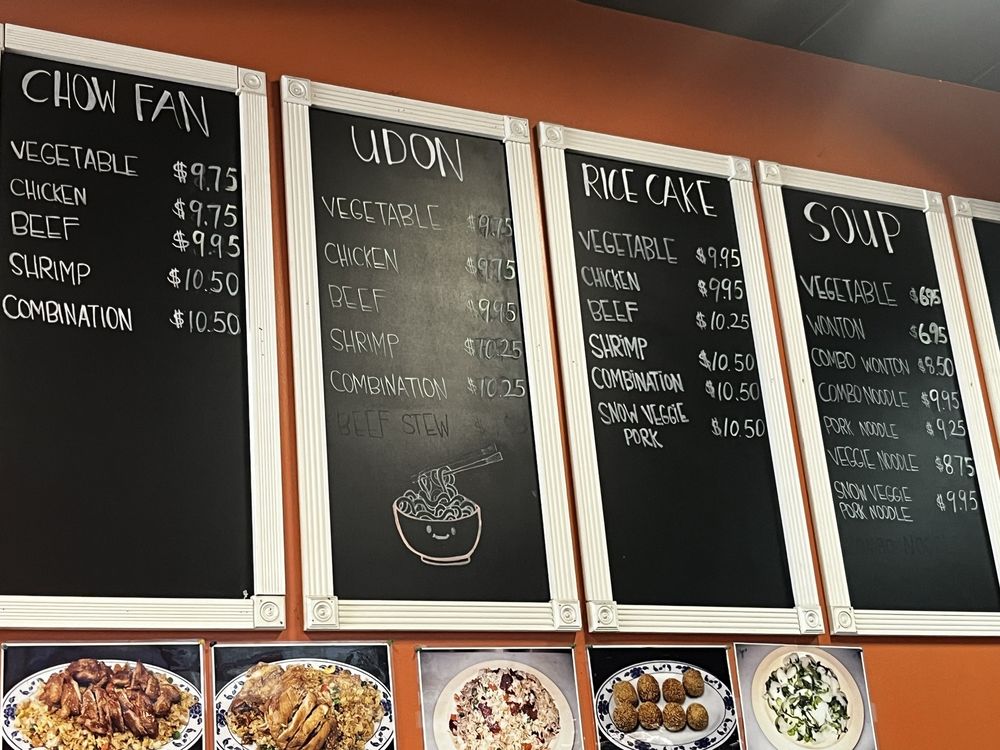 CHOW FAN
VEGETABLE $9.75
CHICKEN $9.75
BEEF $9.95
SHRIMP $10.50
COMBINATION $10.50
UDON
VEGETABLE $9.75
CHICKEN $9.75
BEEF $9.95
SHRIMP $10.25
COMBINATION $10.25
BEEF STEW
RICE CAKE
VEGETABLE $9.95
CHICKEN $9.95
BEEF $10.25
SHRIMP $10.50
COMBINATION $10.50
SNOW VEGGIE
PORK $10.50
SOUP
VEGETABLE $6.95
WONTON $6.95
COMBO WONTON $8.50
COMBO NOODLE $9.95
PORK NOODLE $9.25
VEGGIE NOODLE $8.75
SNOW VEGGIE
PORK NOODLE $9.95